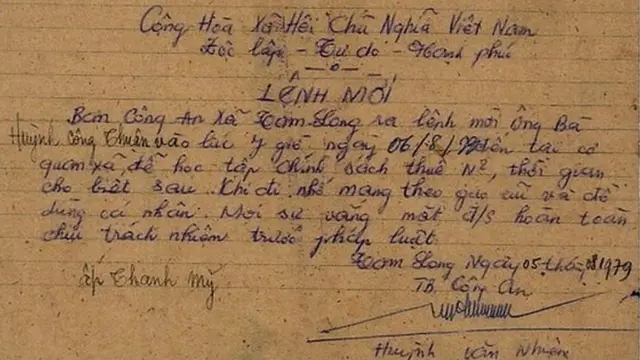 Cộng Hoà Xã Hội Chủ Nghĩa Việt Nam
Độc lập - Tự do - Hạnh phúc
LỆNH MỜI
Ban Công An Xã Tam Long ra lệnh mời Ông Bà
Huỳnh Công Thuận vào lúc 7 giờ ngày 06/8/ đến tại cơ
quan xã, để học tập chính sách thuế N², thời gian
cho biết sau. Khi đi nhớ mang theo gạo củi và đồ
dùng cá nhân. Mọi sự vắng mặt đ/s hoàn toàn
chịu trách nhiệm trước pháp luật.
Tam Long Ngày 05 tháng 08 1979
ấp Thanh Mỹ
TB Công An
Huỳnh Văn Nhiên